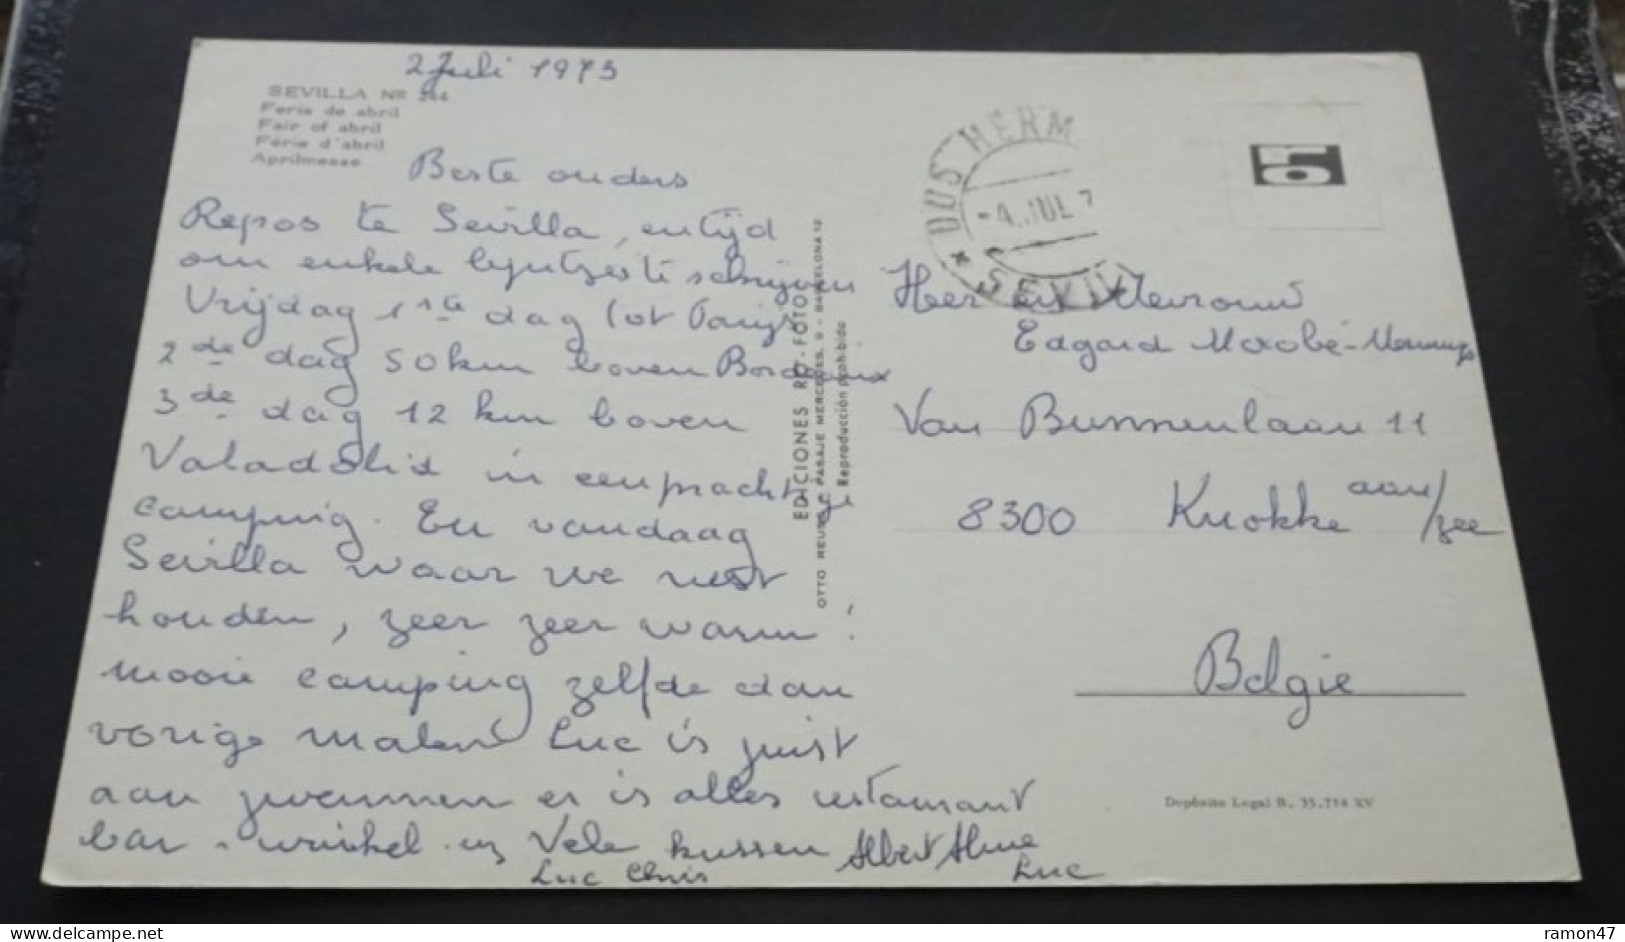 2 Juli 1973
SEVILLA Nº 244
Feria de abril
Fair of abril
Férie d'abril
Aprilmesse
Beste ouders
Repos te Sevilla, en tijd
om enkele lijntjes te schrijven
Vrijdag 1ste dag tot Parijs
2de dag 50 km boven Bordeaux
3de dag 12 km boven
Valadolid in een prachtige
camping. En vandaag
Sevilla waar we rust
houden, zeer zeer warm!
mooie camping zelfde dan
vorige malen Luc is juist
aan zwemmen er is alles restaurant
bar - winkel enz Vele kussen Albert Aline
Luc Chris Luc
EDICIONES FOTO
OTTO REUSS PASAJE MERCEDES, 9 - BARCELONA 12
Reproducción prohibida
DUS HERM
-4 JUL 7
* SEVILL
5
Heer en Mevrouw
Edgard
Van Bunnenlaan 11
8300 Knokke aan/zee
Belgie
Depósito Legal B. 35.714 XV
delcampe.net
ramon47